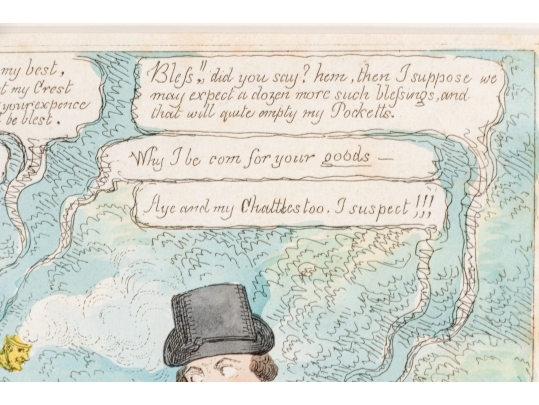 my best,
my Crest
your expence
be blest.
Bless,!! did you say? hem, then I suppose we
may expect a dozen more such blessings, and
that will quite empty my Pocketts.
Why I be com for your goods —
Aye and my Chattles too. I suspect !!!